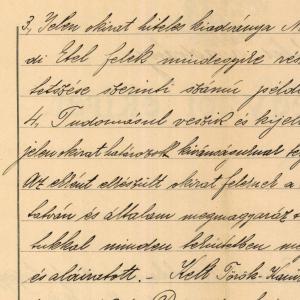 3, Jelen okirat hiteles kiadványa
di Etel felek mindegyike
tetszése szerinti számú
4, Tudomásul veszik és
jelen okirat határozott kivánságuknak
Az ekként elkészült okirat feleknek a
tatván és általam megmagyaráz
tukkal minden tekintetben
és aláiratott. - Kelt Török-